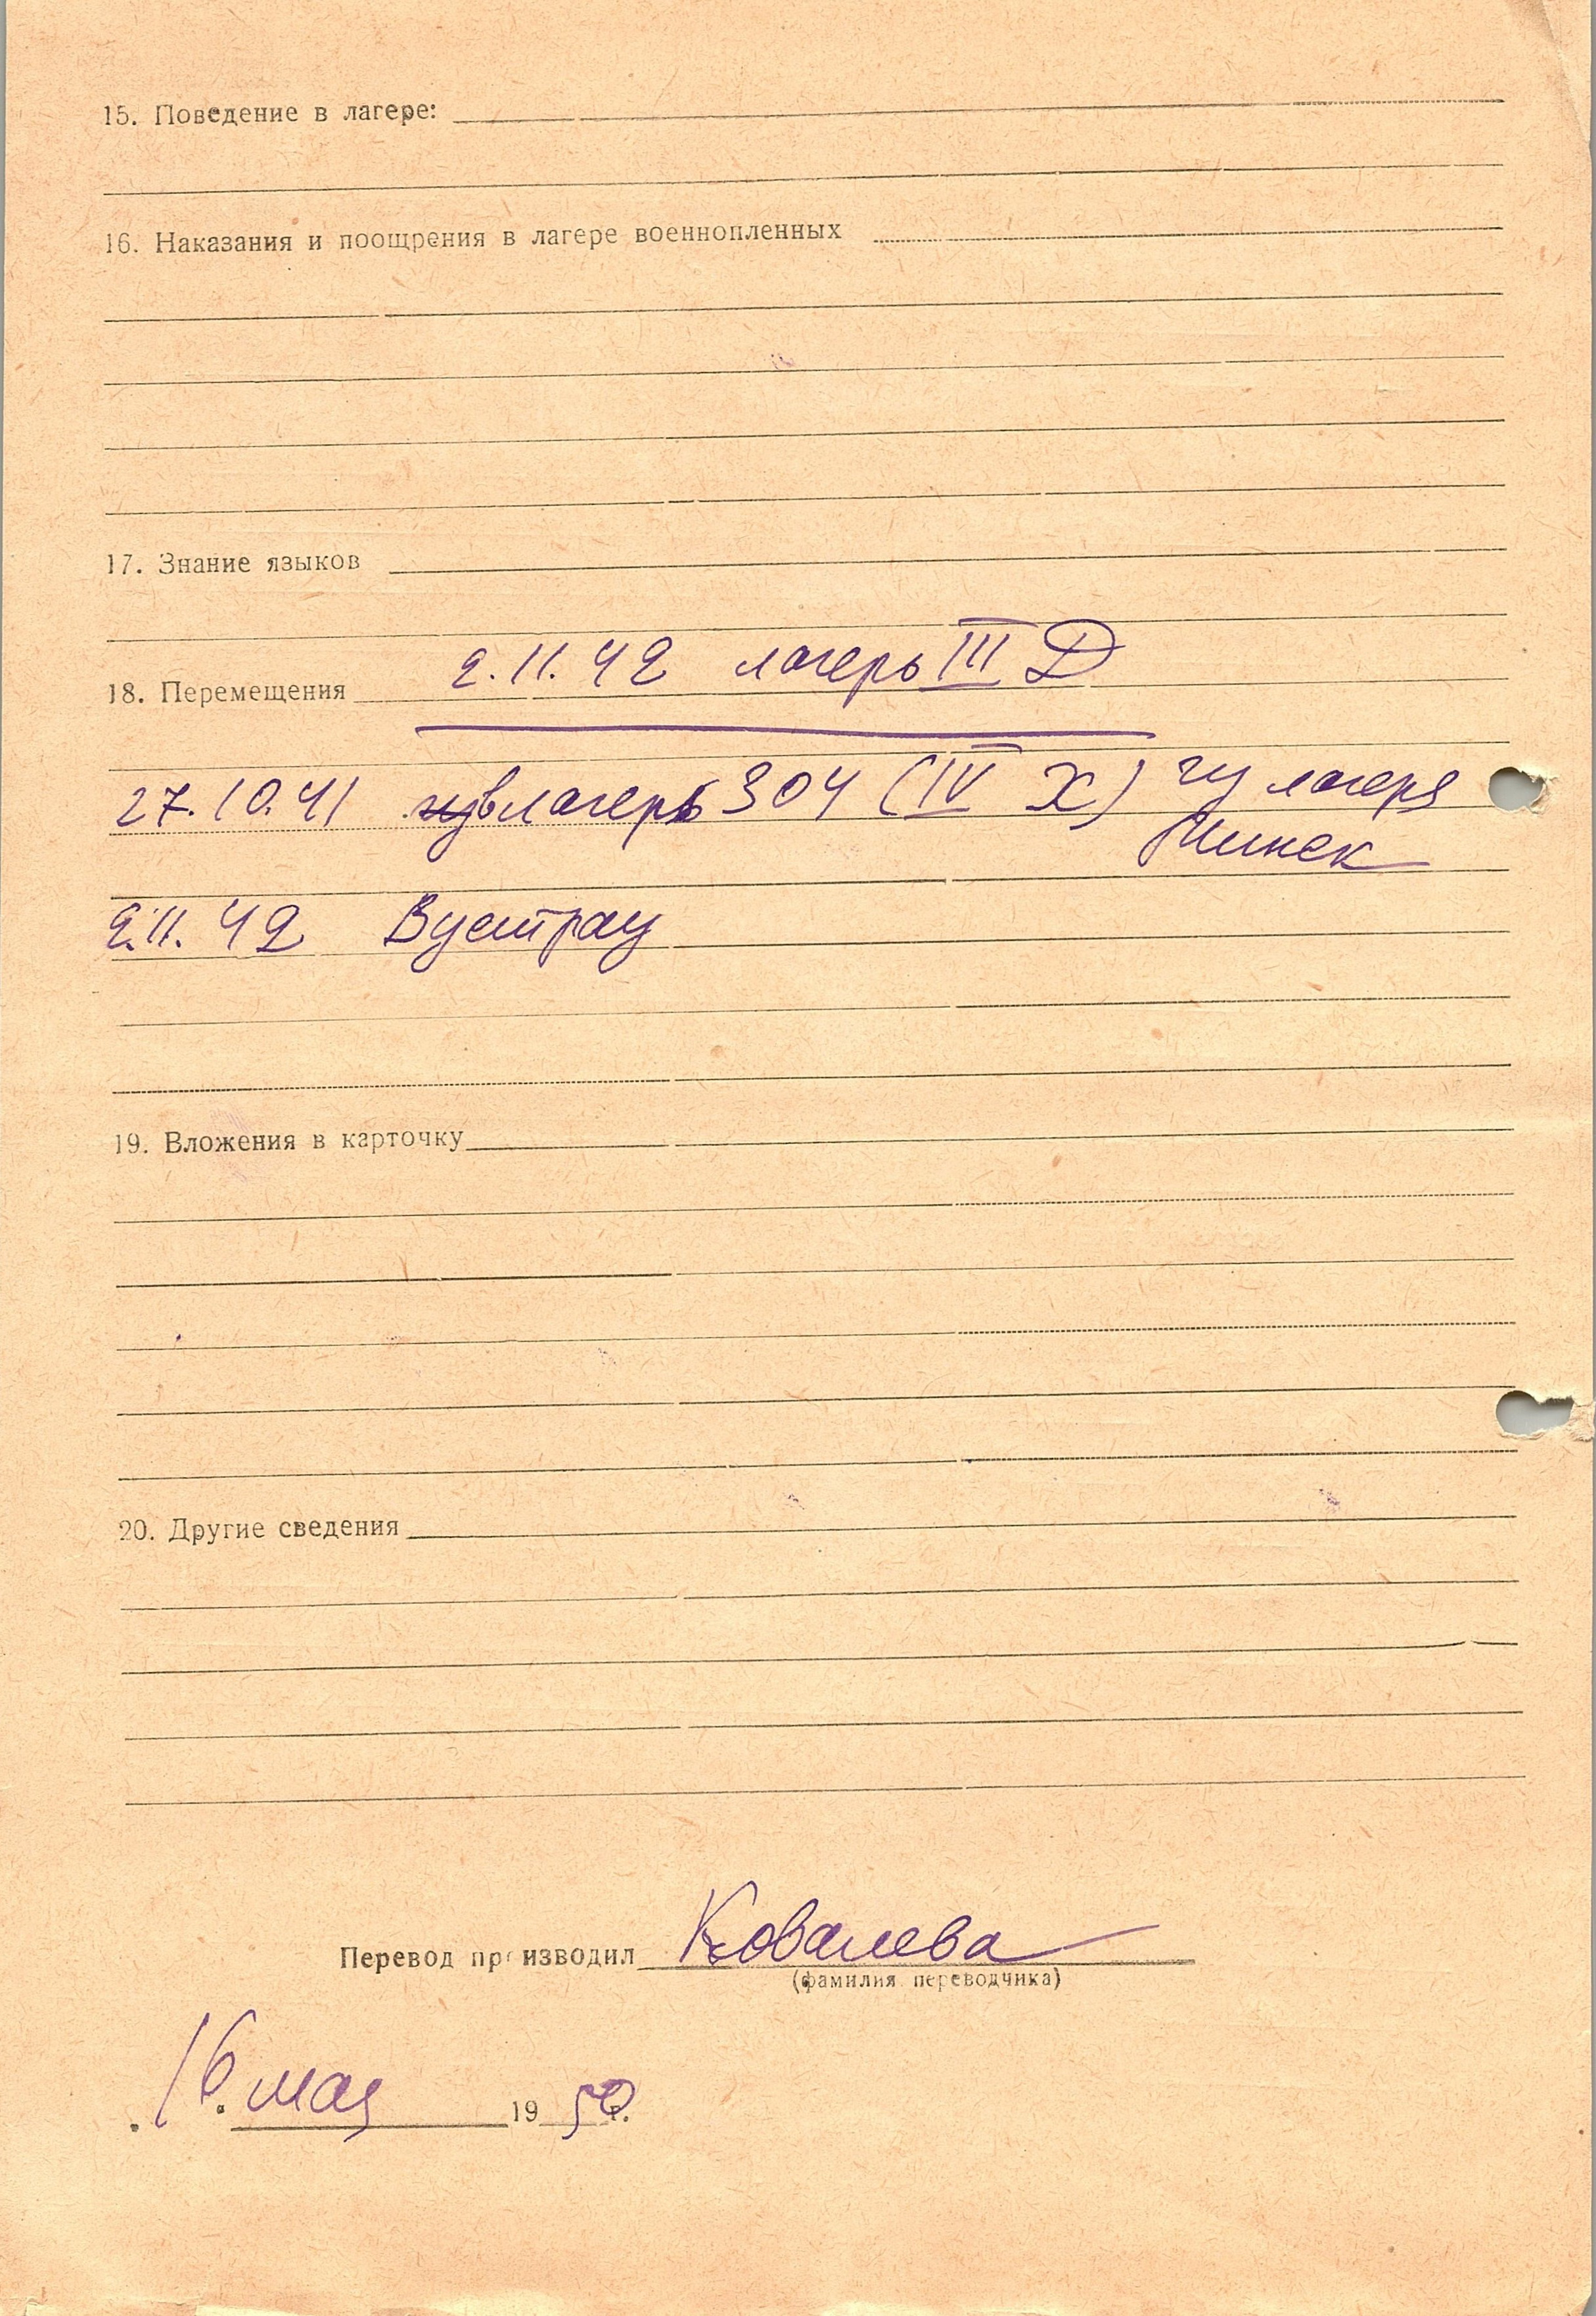 15. Поведение в лагере:
16. Наказания и поощрения в лагере военнопленных
17. Знание языков
18. Перемещения 2.11.42 лагерь III Д
27.10.41 в лагерь 304 (IV Х) из лагеря
Минск
2.11.42 Вустрау
19. Вложения в карточку
20. Другие сведения
Перевод производил Ковалева
(фамилия переводчика)
16. мая 1950 г.